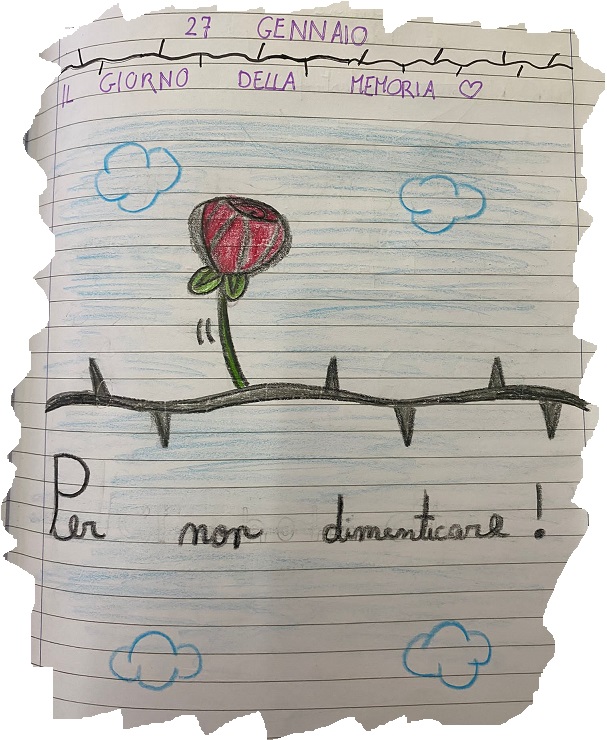 27 GENNAIO
IL GIORNO DELLA MEMORIA ♡
Per non dimenticare!